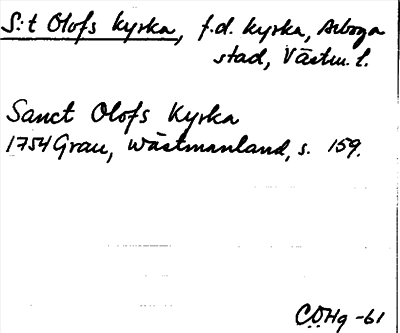 S:t Olofs kyrka, f.d. kyrka, Arboga
stad, Västm. l.
Sanct Olofs Kyrka
1754 Grau, Wästmanland, s. 159.
CÖHg -61